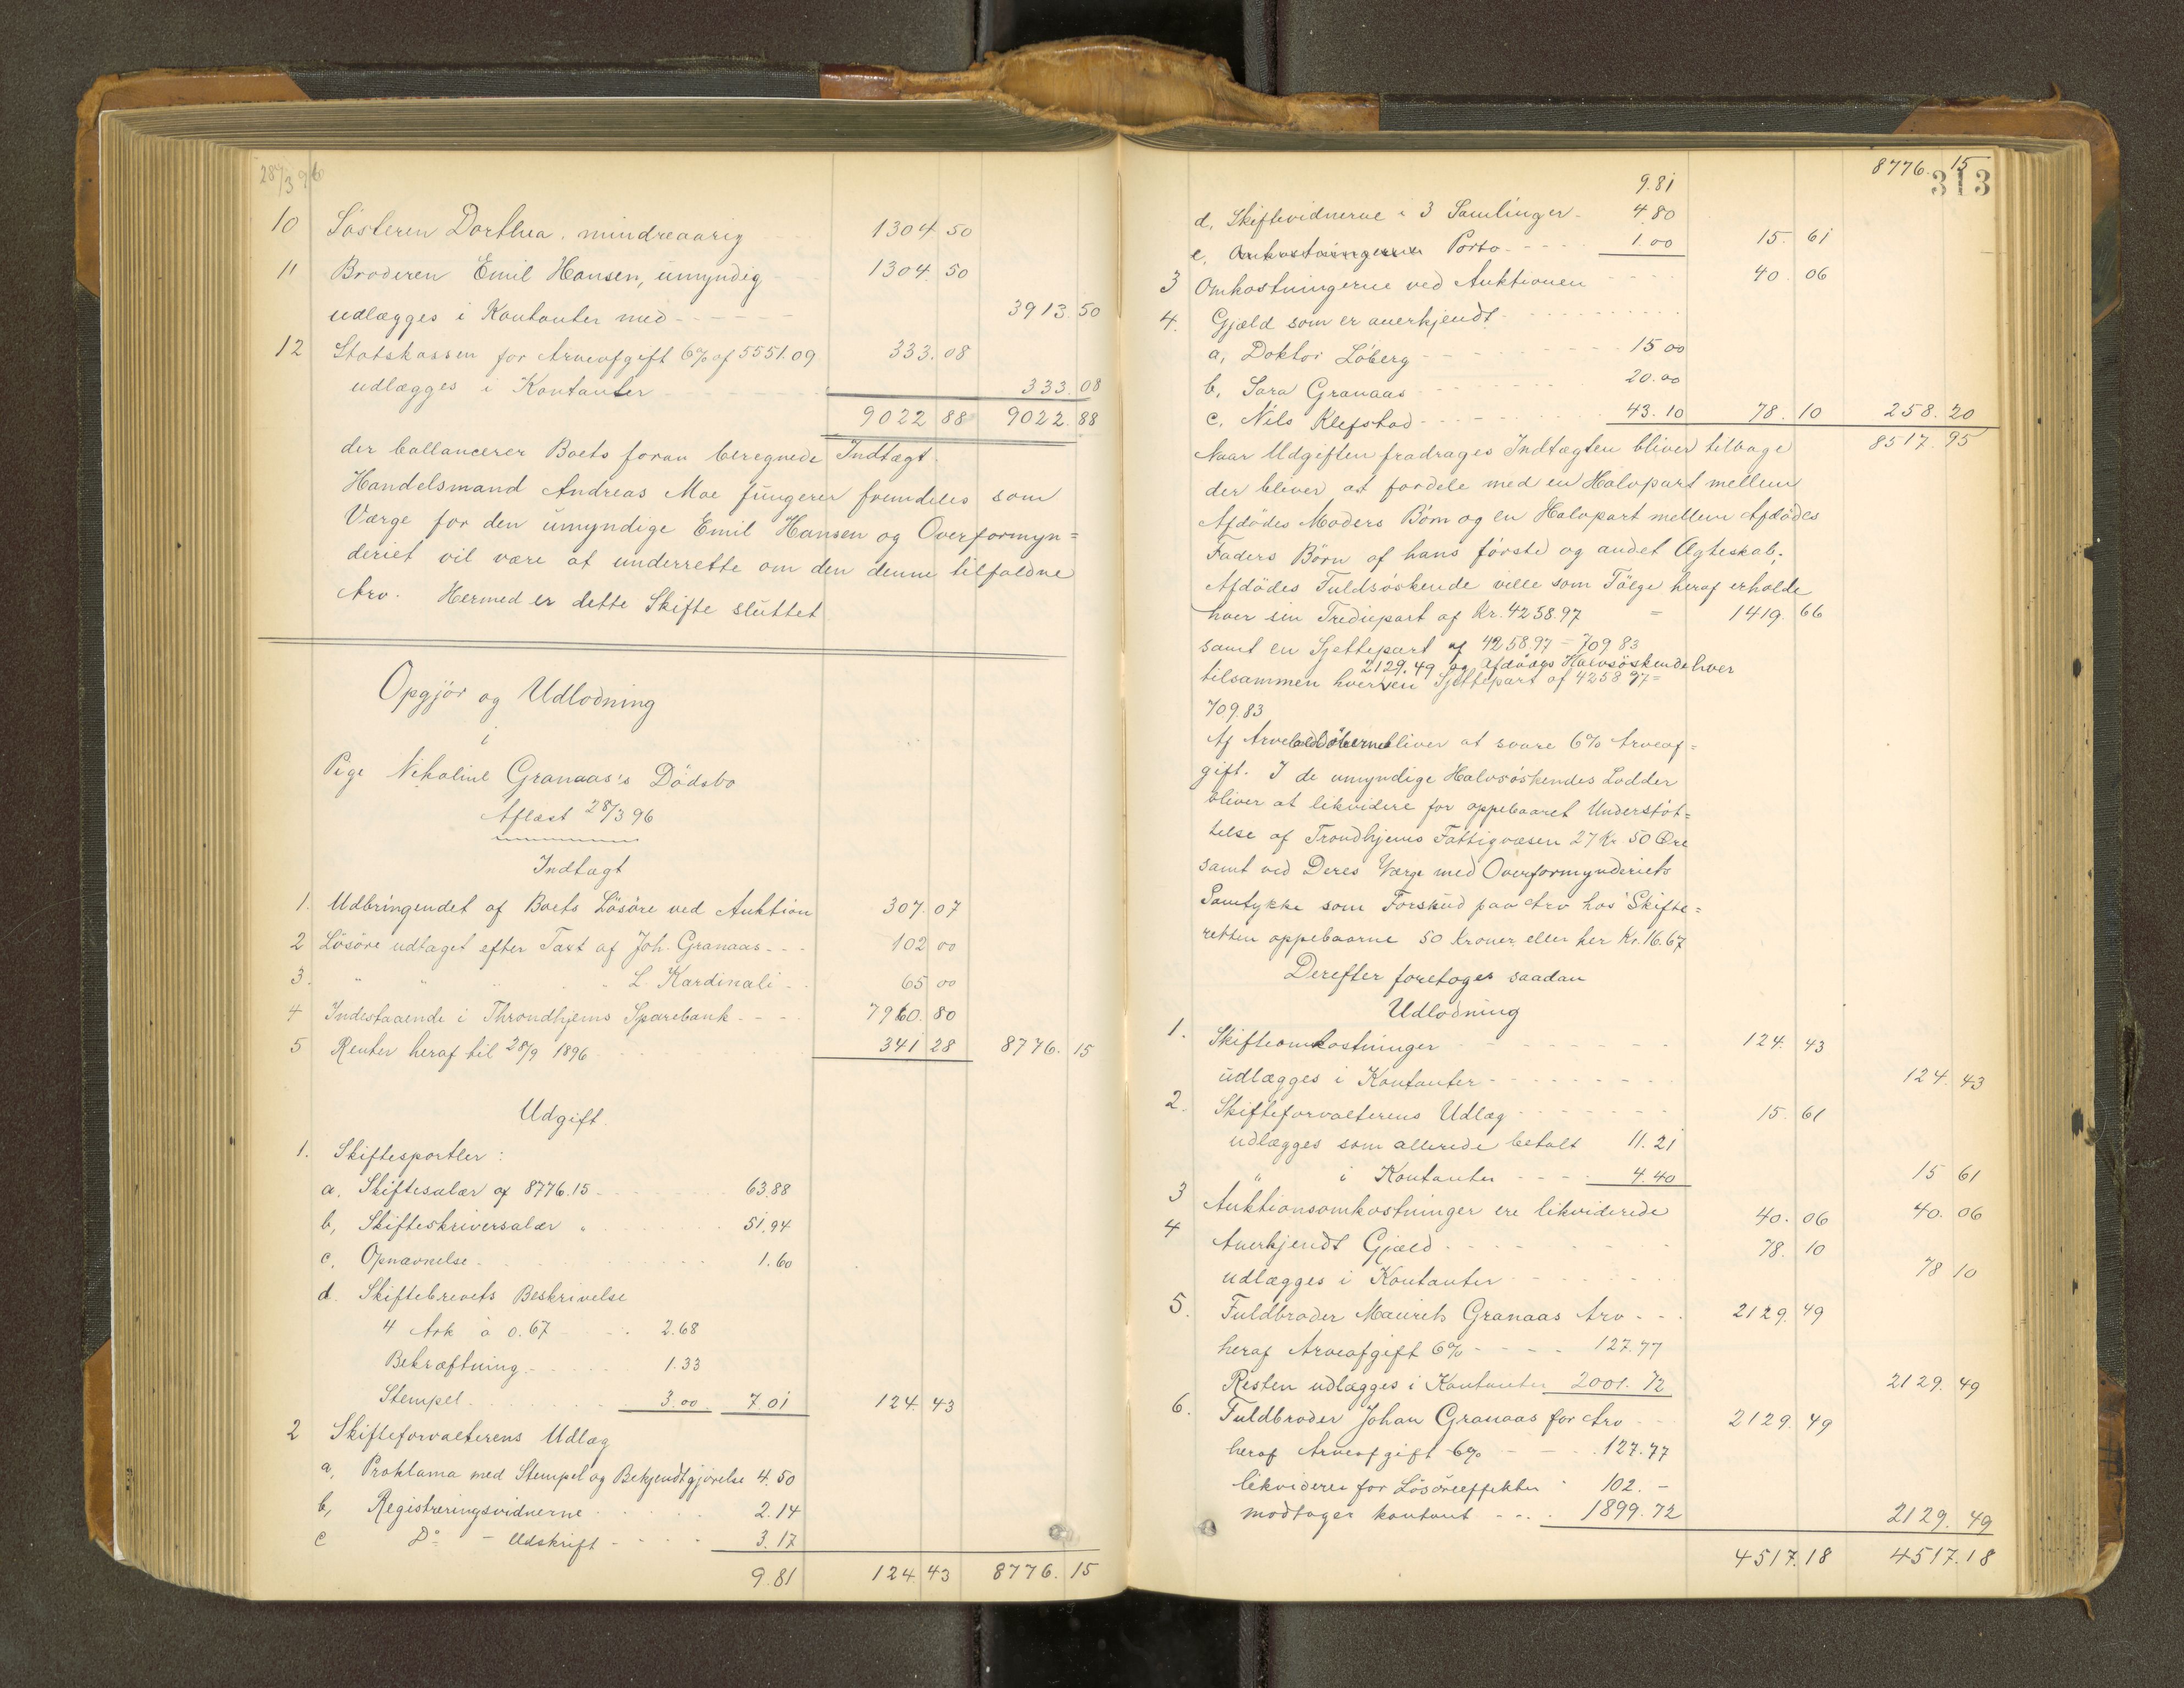 28/3 96
10 Søsteren Dorthea, mindreaarig 1304 50
11 Broderen Emil Hansen, umyndig 1304. 50
udlægges i Kontanter med 3913. 50
12 Statskassen for Arveafgift 6% af 5551.09 333. 08
udlægges i Kontanter 333. 08
9022 88 9022. 88
der ballancerer Boets foran beregnede Indtægt.
Handelsmand Andreas Moe fungerer fremdeles som
Værge for den umyndige Emil Hansen og Overformyn=
deriet vil være at underrette om den denne tilfaldne
Arv. Hermed er dette Skifte sluttet
Opgjør og Udlodning
i
Pige Nikoline Granaas's Dødsbo
Aflæst 28/3 96
Indtægt
1. Udbringendet af Boets Løsøre ved Auktion 307. 07
2 Løsøre udtaget efter Taxt af Joh. Granaas 102 00
3. " " " " L. Kardinali 65 00
4 Indestaaende i Throndhjems Sparebank 7960. 80
5 Renter heraf til 28/9 1896 341 28 8776. 15
Udgift.
1. Skiftesportler:
a, Skiftesalær af 8776.15 63.88
b, Skifteskriversalær " 51.94
c, Opnævnelse 1.60
d. Skiftebrevets Beskrivelse
4 Ark à 0.67 2.68
Bekræftning 1.33
Stempel 3.00 7.01 124. 43
2 Skifteforvalterens Udlæg
a, Proklama med Stempel og Bekjendtgjørelse 4.50
b, Registreringsvidnerne 2.14
c Do - Udskrift 3.17
9.81 124. 43 8776. 15
8776. 15
313
9.81
d, Skiftevidnerne i 3 Samlinger 4.80
e, Omkostningerne Porto 1.00 15. 61
3 Omkostningerne ved Auktionen 40. 06
4. Gjæld som er anerkjendt
a, Doktor Løberg 15 00
b, Sara Granaas 20.00
c, Nils Klefstad 43.10 78. 10 258. 20
Naar Udgiften fradrages Indtægten bliver tilbage 8517. 95
der bliver at fordele med en Halvpart mellem
Afdødes Moders Børn og en Halvpart mellem Afdødes
Faders Børn af hans første og andet Ægteskab;
Afdødes Fuldsøskende ville som Følge heraf erholde
hver sin Trediepart af Kr. 4258.97 = 1419. 66
samt en Sjettepart af 4258.97 = 709 83
2129.49 og Afdødes Halvsøskende hver
tilsammen hver en Sjettepart af 4258 97 =
709.83
Af bliver at svare 6% Arveaf=
gift. I de umyndige Halvsøskendes Lodder
bliver at likvidere for oppebaaret Understøt=
telse af Trondhjems Fattigvæsen 27 Kr. 50 Øre
samt ved Deres Værge med Overformynderiets
Samtykke som Forskud paa Arv hos Skifte=
retten oppebaarne 50 Kroner eller her Kr. 16.67
Derefter foretoges saadan
Udlodning
1. Skifteomkostninger 124. 43
udlægges i Kontanter 124. 43
2. Skifteforvalterens Udlæg 15. 61
udlægges som allerede betalt 11.21
" i Kontanter 4.40 15 61
3 Auktionsomkostninger ere likviderede 40. 06 40. 06
4 Anerkjendt Gjæld 78. 10
udlægges i Kontanter 78 10
5. Fuldbroder Maurits Granaas Arv 2129. 49
heraf Arveafgift 6% 127.77
Resten udlægges i Kontanter 2001. 72 2129. 49
6. Fuldbroder Johan Granaas for Arv 2129. 49
heraf Arveafgift 6% 127.77
likvideres for Løsøreeffekter 102. -
modtager kontant 1899.72 2129. 49
4517. 18 4517. 18